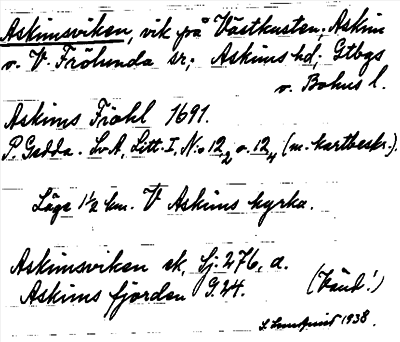 Askimsviken, vik på Västkusten; Askim
o. V. Frölunda sr; Askims hd; Gtbgs
o. Bohus l.
Askims Fröhl 1691.
P. Gedda. Sv.A, Litt. I, N:o 12,2 o. 12,4 (m. kartbeskr.).
Läge 1½ km. V Askims kyrka.
Askimsviken ek. Sj. 276, a.
Askims fjorden G.24. (Vänd!)
S. Lundquist 1938.